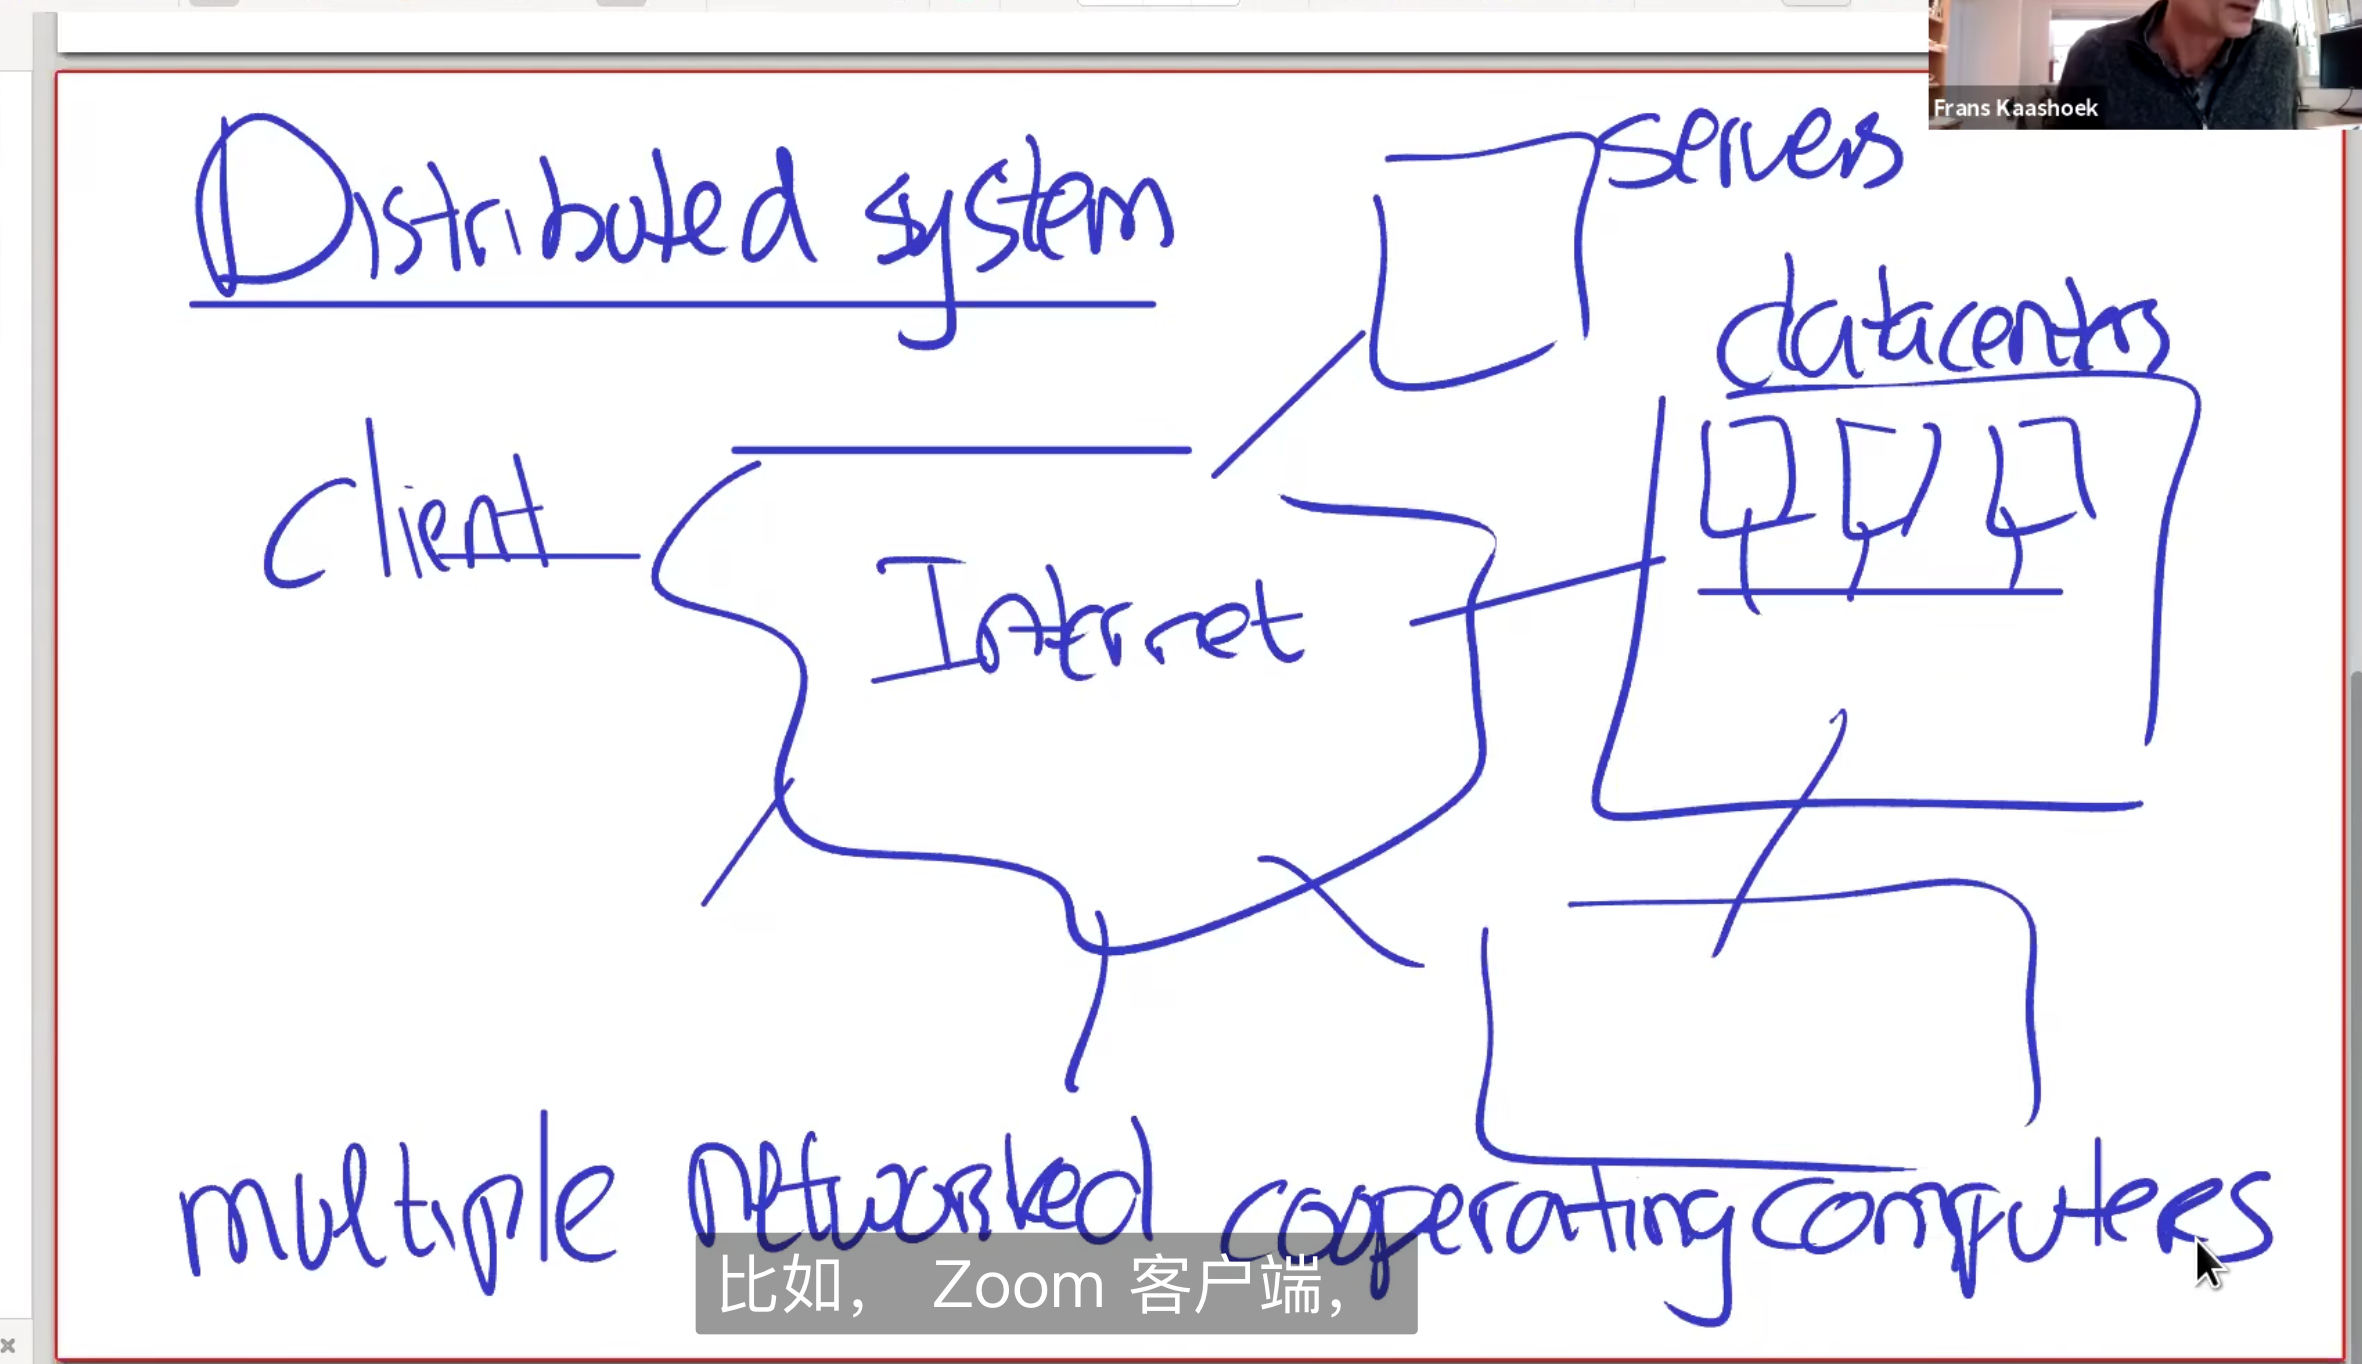 Frans Kaashoek
Distributed system
servers
datacenters
client
Internet
multiple networked cooperating computers
比如， Zoom 客户端，